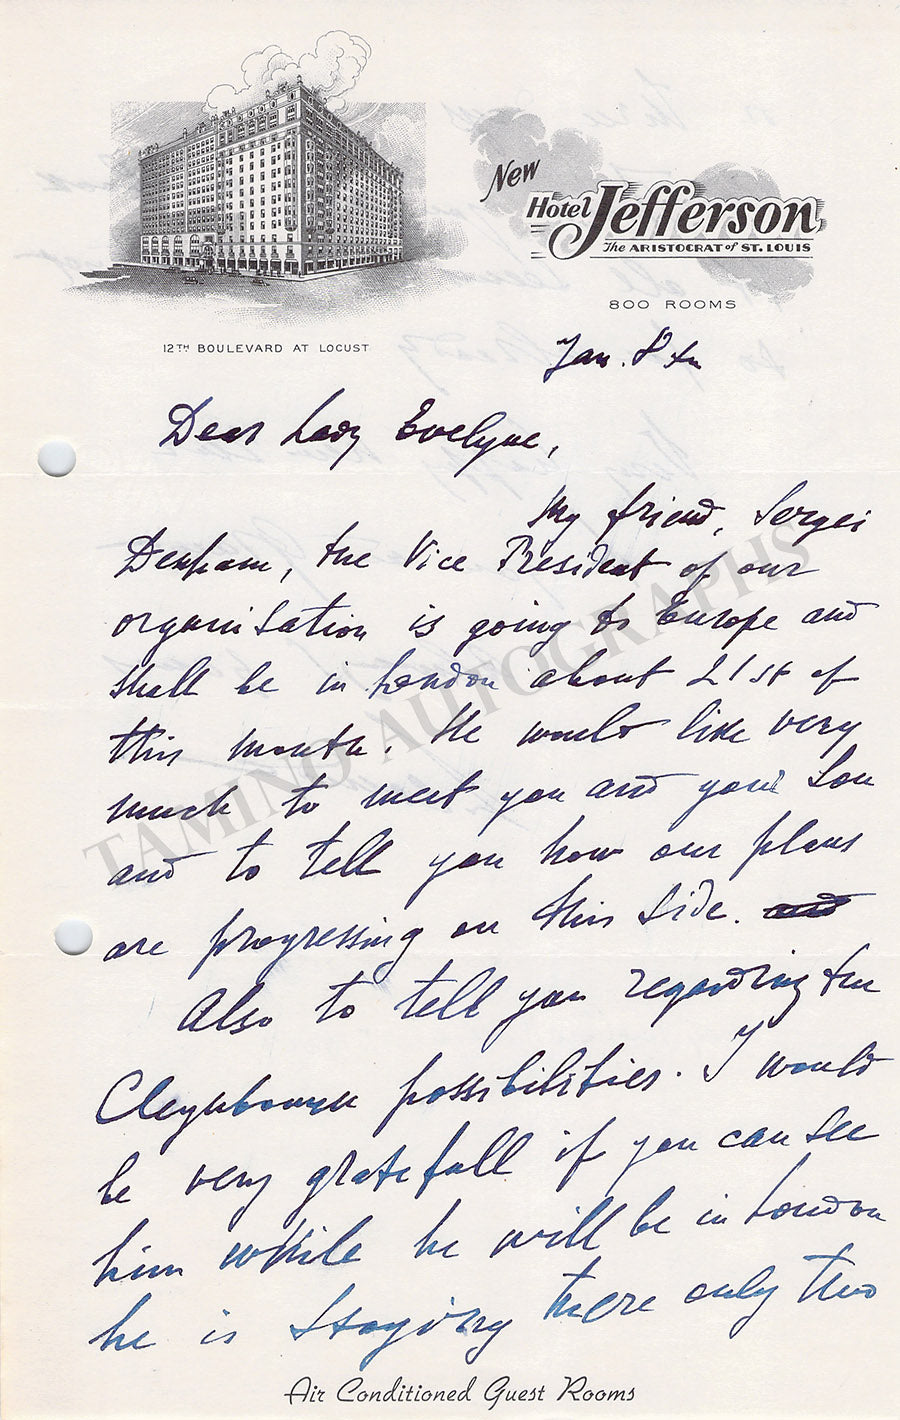 New
Hotel Jefferson
The ARISTOCRAT of ST. LOUIS
800 ROOMS
12TH BOULEVARD AT LOCUST
Jan. 8th
Dear Lady Evelyne,
My friend, Sergei
Denham, the Vice President of our
organisation is going to Europe and
shall be in London about 21st of
this month. He would like very
much to meet you and your son
and to tell you how our plans
are progressing on this side. and
Also to tell you regarding the
possibilities. I would
be very gratefull if you can see
him while he will be in London
he is staying there only two
Air Conditioned Guest Rooms
TAMINO AUTOGRAPHS